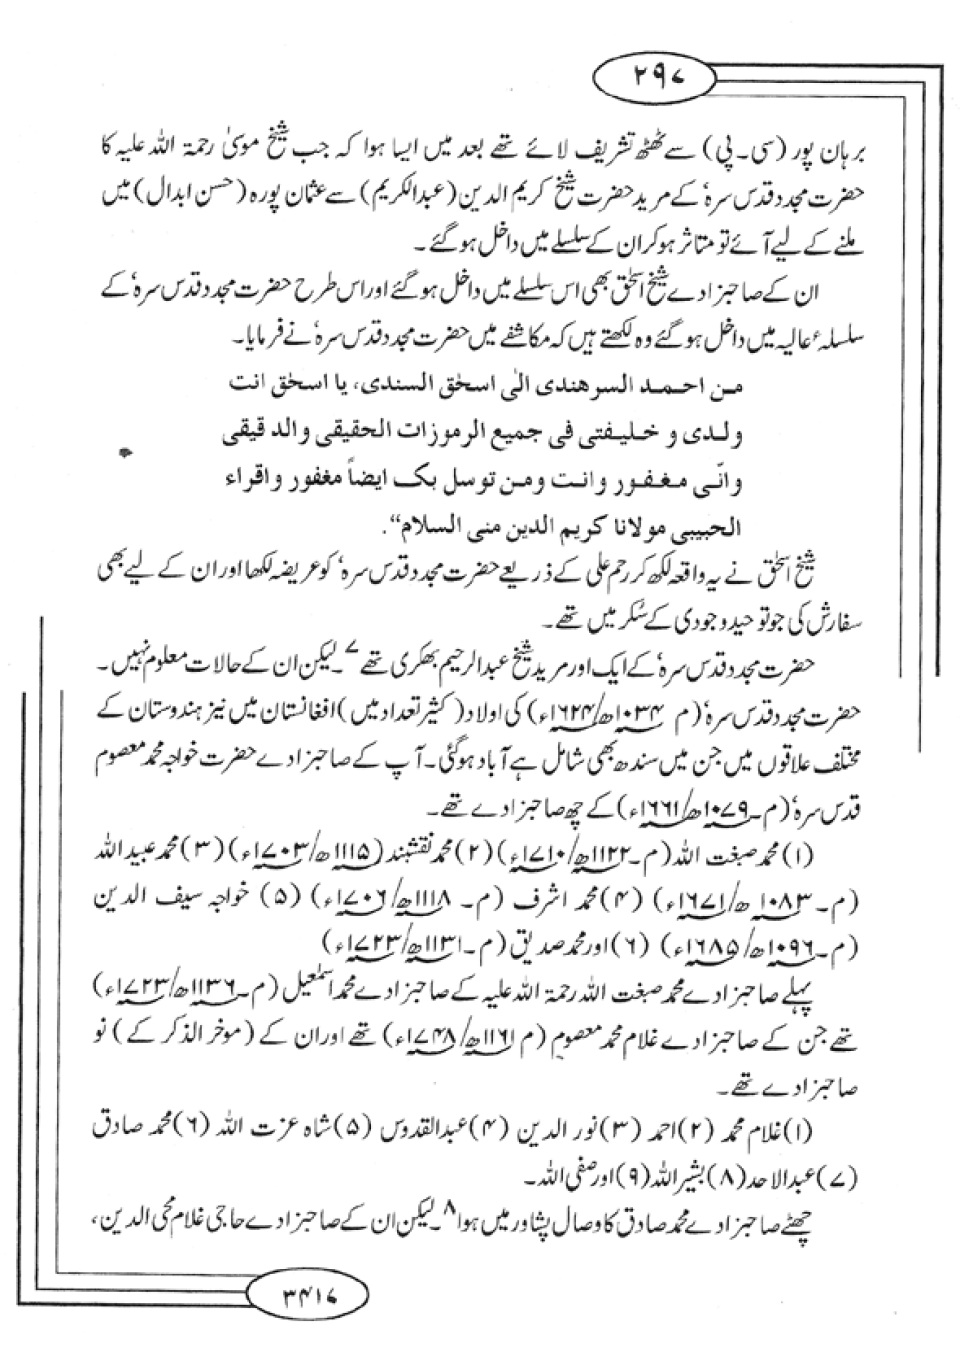 ۲۹۷
برہان پور (سی۔پی) سے ٹھٹھ تشریف لائے تھے بعد میں ایسا ہوا کہ جب شیخ موسیٰ رحمۃ اللہ علیہ کا
حضرت مجدد قدس سرہٗ کے مرید حضرت شیخ کریم الدین (عبدالکریم) سے عثمان پورہ (حسن ابدال) میں
ملنے کے لیے آئے تو متاثر ہو کر ان کے سلسلے میں داخل ہو گئے۔
ان کے صاحبزادے شیخ اسحٰق بھی اس سلسلے میں داخل ہو گئے اور اس طرح حضرت مجدد قدس سرہٗ کے
سلسلہ ٔ عالیہ میں داخل ہو گئے وہ لکھتے ہیں کہ مکاشفے میں حضرت مجدد قدس سرہٗ نے فرمایا۔
من احمد السرهندی الی اسحٰق السندی، یا اسحٰق انت
ولدی و خلیفتی فی جمیع الرموزات الحقیقی والد قیقی
وانّی مغفور وانت ومن توسل بک ایضاً مغفور واقراء
الحبیبی مولانا کریم الدین منی السلام“.
شیخ اسحٰق نے یہ واقعہ لکھ کر رحم علی کے ذریعے حضرت مجدد قدس سرہٗ کو عریضہ لکھا اور ان کے لیے بھی
سفارش کی جو توحید وجودی کے سُکر میں تھے۔
حضرت مجدد قدس سرہٗ کے ایک اور مرید شیخ عبدالرحیم بھکری تھے ۷۔ لیکن ان کے حالات معلوم نہیں۔
حضرت مجدد قدس سرہٗ (م ۱۰۳۴ھ/۱۶۲۴ء) کی اولاد (کثیر تعداد میں) افغانستان میں نیز ہندوستان کے
مختلف علاقوں میں جن میں سندھ بھی شامل ہے آباد ہو گئی۔ آپ کے صاحبزادے حضرت خواجہ محمد معصوم
قدس سرہٗ (م۔۱۰۷۹ھ/۱۶۶۱ء) کے چھ صاحبزادے تھے۔
(۱) محمد صبغت اللہ (م۔۱۱۲۲ھ/۱۷۱۰ء) (۲) محمد نقشبند (۱۱۱۵ھ/۱۷۰۳ء) (۳) محمد عبید اللہ
(م۔۱۰۸۳ھ/۱۶۷۱ء) (۴) محمد اشرف (م۔ ۱۱۱۸ھ/۱۷۰۶ء) (۵) خواجہ سیف الدین
(م۔۱۰۹۶ھ/۱۶۸۵ء) (۶) اور محمد صدیق (م۔۱۱۳۱ھ/۱۷۲۳ء)
پہلے صاحبزادے محمد صبغت اللہ رحمۃ اللہ علیہ کے صاحبزادے محمد اسمٰعیل (م۔۱۱۳۶ھ/۱۷۲۳ء)
تھے جن کے صاحبزادے غلام محمد معصوم (م ۱۱۶۱ھ/۱۷۴۸ء) تھے اور ان کے (موخر الذکر کے) نو
صاحبزادے تھے۔
(۱) غلام محمد (۲) احمد (۳) نور الدین (۴) عبدالقدوس (۵) شاہ عزت اللہ (۶) محمد صادق
(۷) عبدالاحد (۸) بشیر اللہ (۹) اور صفی اللہ۔
چھٹے صاحبزادے محمد صادق کا وصال پشاور میں ہوا ۸۔ لیکن ان کے صاحبزادے حاجی غلام محی الدین،
۳۴۱۷